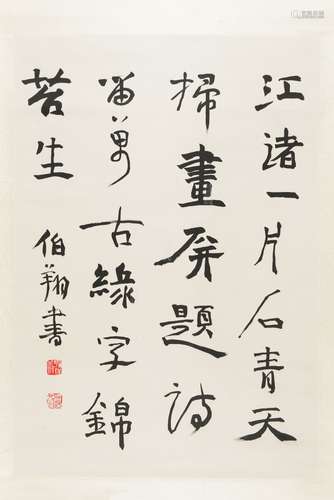 江渚一片石青天
掃畫屏題詩
留萬古綠字錦
苔生
伯翔書